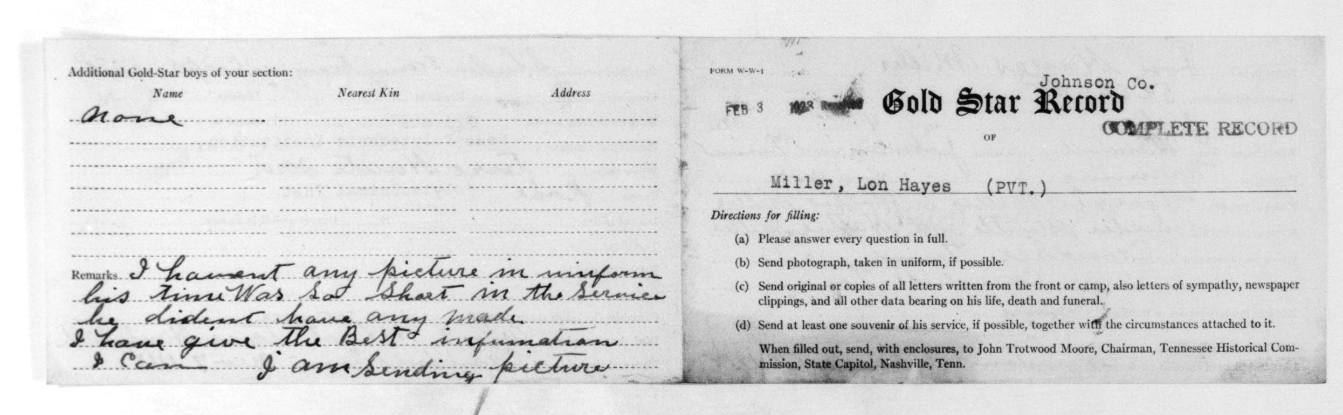 Additional Gold-Star boys of your section:
Name Nearest Kin Address
None
Remarks. I havent any picture in uniform
his time Was So Short in the Service
he dident have any made
I have give the Best infumation
I Can I am Sending picture
FORM W-W-1
Johnson Co.
FEB 3 1923
Gold Star Record
COMPLETE RECORD
OF
Miller, Lon Hayes (PVT.)
Directions for filling:
(a) Please answer every question in full.
(b) Send photograph, taken in uniform, if possible.
(c) Send original or copies of all letters written from the front or camp, also letters of sympathy, newspaper
clippings, and all other data bearing on his life, death and funeral.
(d) Send at least one souvenir of his service, if possible, together with the circumstances attached to it.
When filled out, send, with enclosures, to John Trotwood Moore, Chairman, Tennessee Historical Com-
mission, State Capitol, Nashville, Tenn.